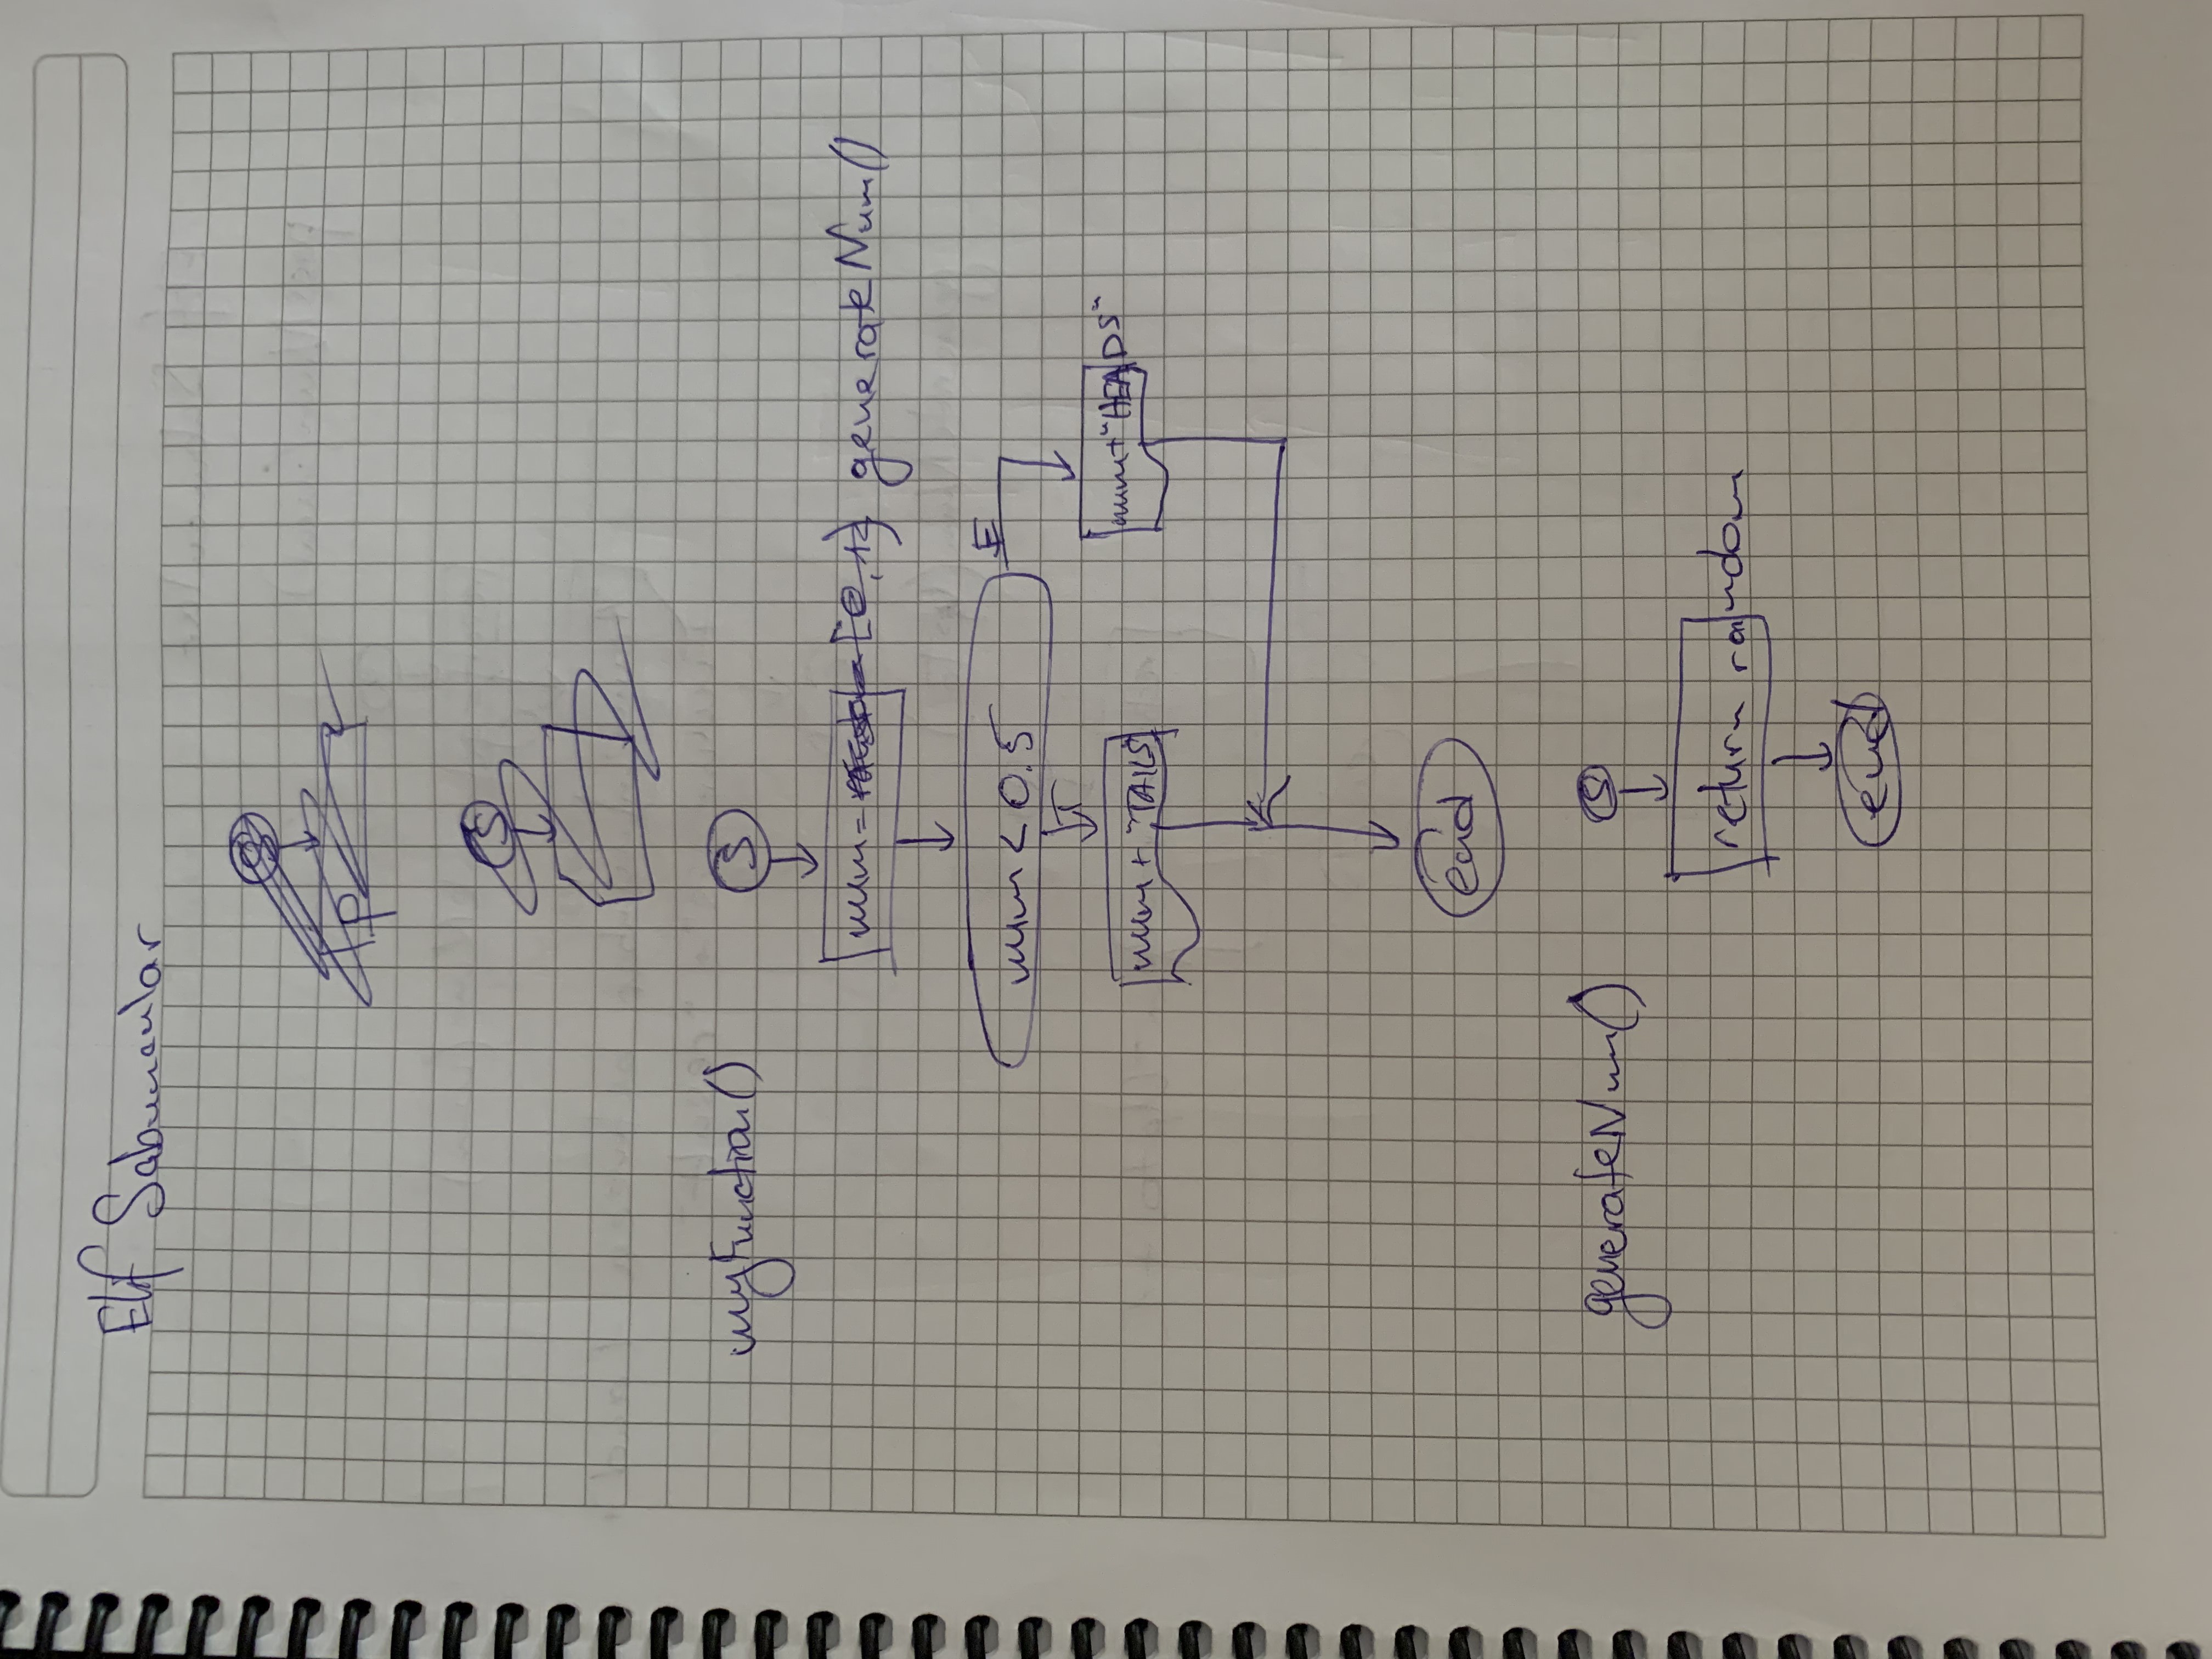 Elif Sabuncular
S
P
S
myFunction()
S
num = [0,1} generateNum()
num < 0.5
E
T
num + "TAILS"
num + "HEADS"
end
generateNum()
S
return random
end